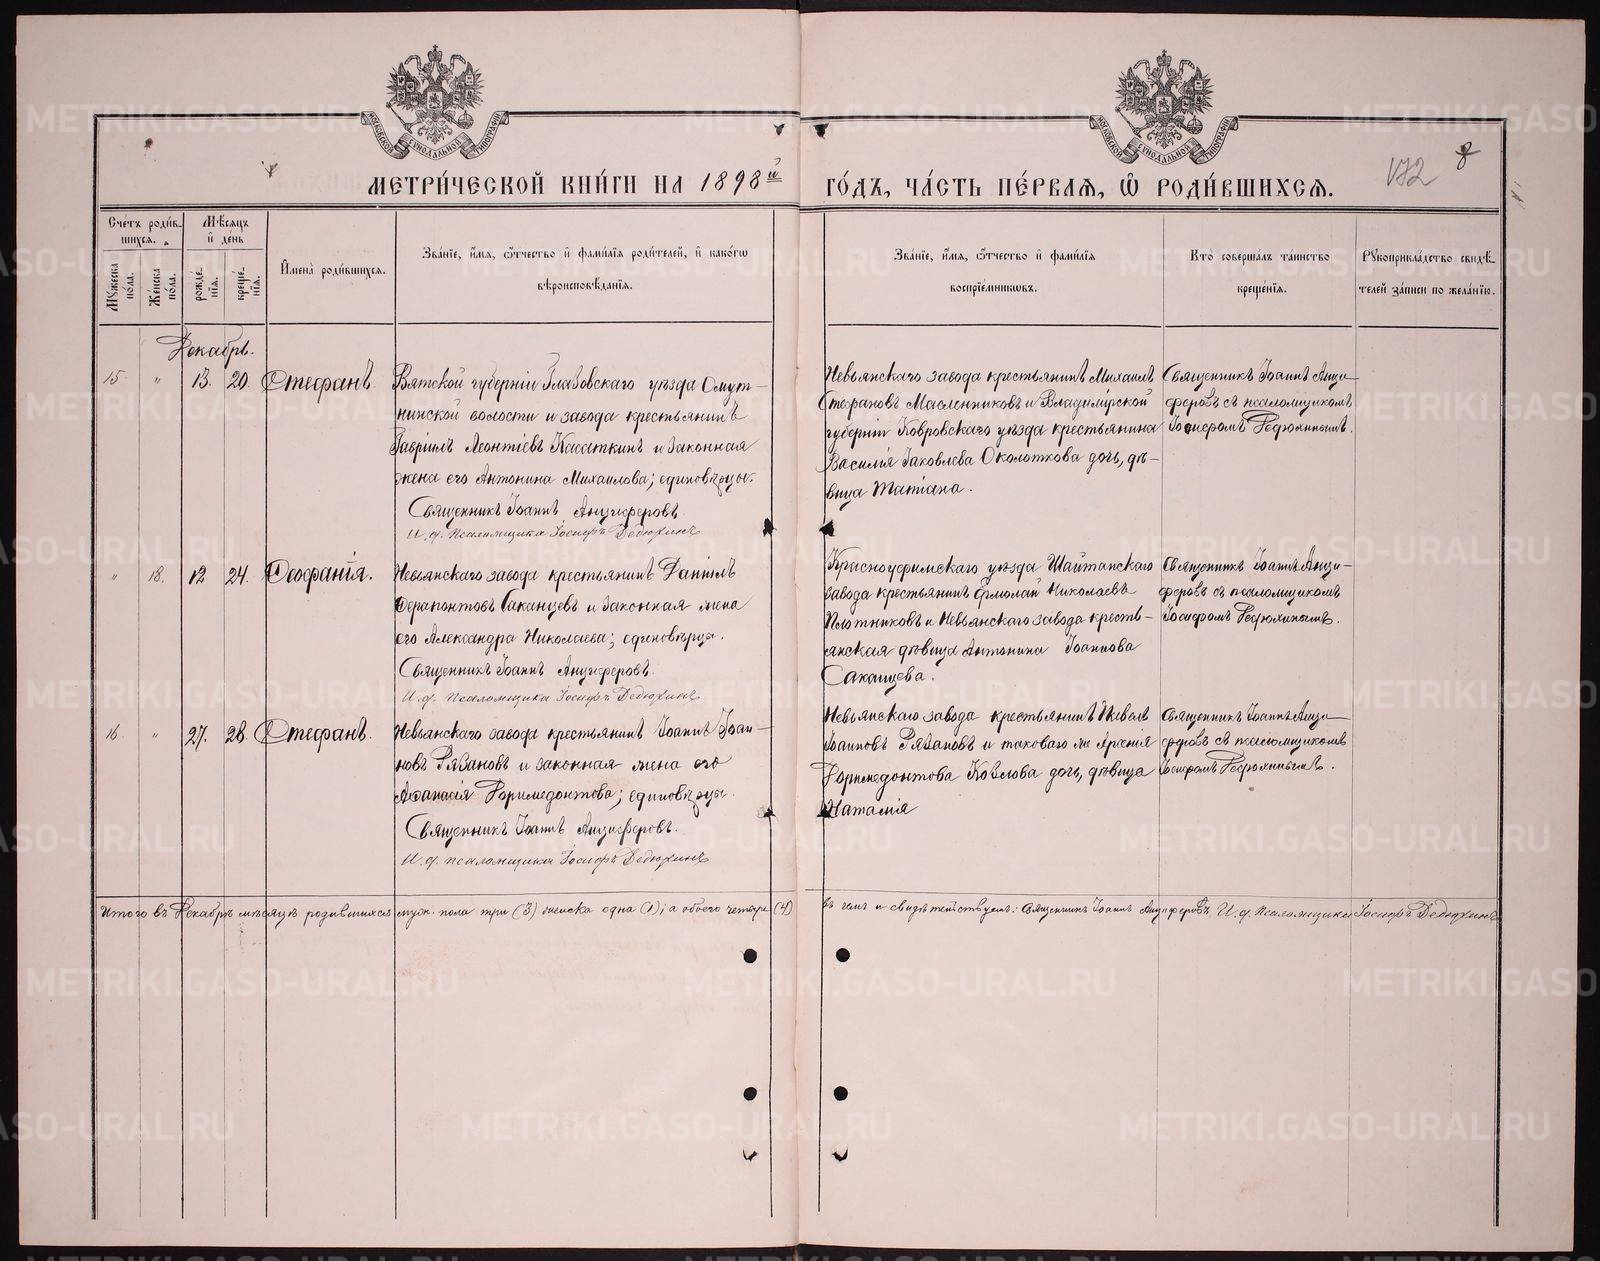 МОСКОВСКОЙ СУНОДАЛЬНОЙ ТИПОГРАФІИ
МОСКОВСКОЙ СУНОДАЛЬНОЙ ТИПОГРАФІИ
МЕТРИ́ЧЕСКОЙ КНИ́ГИ НА 1898 й
ГО́ДЪ, ЧА́СТЬ ПЕ́РВАЯ, Ѽ РОДИ́ВШИХСЯ.
172 8
Сче́тъ роди́в-
шихся.
Му́жеска по́ла.
Же́нска по́ла.
Мѣсяцъ
и҆ де́нь
рожде́-
нія.
креще́-
нія.
И҆мена̀ роди́вшихся.
Зва́ніе, и҆́мя, ѻ҆́тчество и҆ фами́лія роди́телей, и҆ како́гѡ
вѣроисповѣ́данія.
Зва́ніе, и҆́мя, ѻ҆́тчество и҆ фами́лія
воспріе́мникѡвъ.
Кто̀ соверша́лъ та́инство
креще́нія.
Рꙋкоприкла́дство свидѣ́-
телей за́писи по жела́нію.
Декабрь.
15 " 13. 20. Стефанъ.
Вятской губерніи Глазовскаго уѣзда Омут-
нинской волости и завода крестьянинъ
Гавріилъ Леонтіевъ Касаткинъ и законная
жена его Антонина Михаилова; единовѣрцы.
Священникъ Іоаннъ Анциферовъ
И. д. псаломщика Іосифъ Дедюхинъ
Невьянскаго завода крестьянинъ Михаилъ
Стефановъ Масленниковъ и Владимірской
губерніи Ковровскаго уѣзда крестьянина
Василія Іаковлева Околоткова дочь, дѣ-
вица Татіана.
Священникъ Іоаннъ Анци-
феровъ съ псаломщикомъ
Іосифомъ Дедюхинымъ.
" 18. 12 24. Ѳеофанія.
Невьянскаго завода крестьянинъ Даніилъ
Ѳерапонтовъ Саканцевъ и законная жена
его Александра Николаева; единовѣрцы.
Священникъ Іоаннъ Анциферовъ
И. д. псаломщика Іосифъ Дедюхинъ
Красноуфимскаго уѣзда Шайтанскаго
завода крестьянинъ Ермолай Николаевъ
Плотниковъ и Невьянскаго завода кресть-
янская дѣвица Антонина Іоаннова
Саканцева.
Священникъ Іоаннъ Анци-
феровъ съ псаломщикомъ
Іосифомъ Дедюхинымъ.
16 " 27. 28. Стефанъ.
Невьянскаго завода крестьянинъ Іоаннъ Іоан-
новъ Рязановъ и законная жена его
Аѳанасія Доримедонтова; единовѣрцы.
Священникъ Іоаннъ Анциферовъ.
И. д. псаломщика Іосифъ Дедюхинъ
Невьянскаго завода крестьянинъ
Іоанновъ Рязановъ и таковаго же
Доримедонтова Козлова дочь, дѣвица
Наталія
Священникъ Іоаннъ Анци-
феровъ съ псаломщикомъ
Іосифомъ Дедюхинымъ.
Итого въ Декабрѣ мѣсяцѣ родившихся муж. пола три (3) женска одна (1); а обоего четыре (4)
въ чемъ и свидѣтельствуемъ: Священникъ Іоаннъ Анциферовъ И. д. Псаломщика Іосифъ Дедюхинъ
METRIKI.GASO-URAL.RU